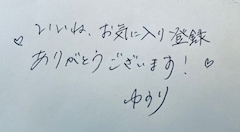 ♡ いいね、お気に入り登録
ありがとうございます! ♡
ゆりり